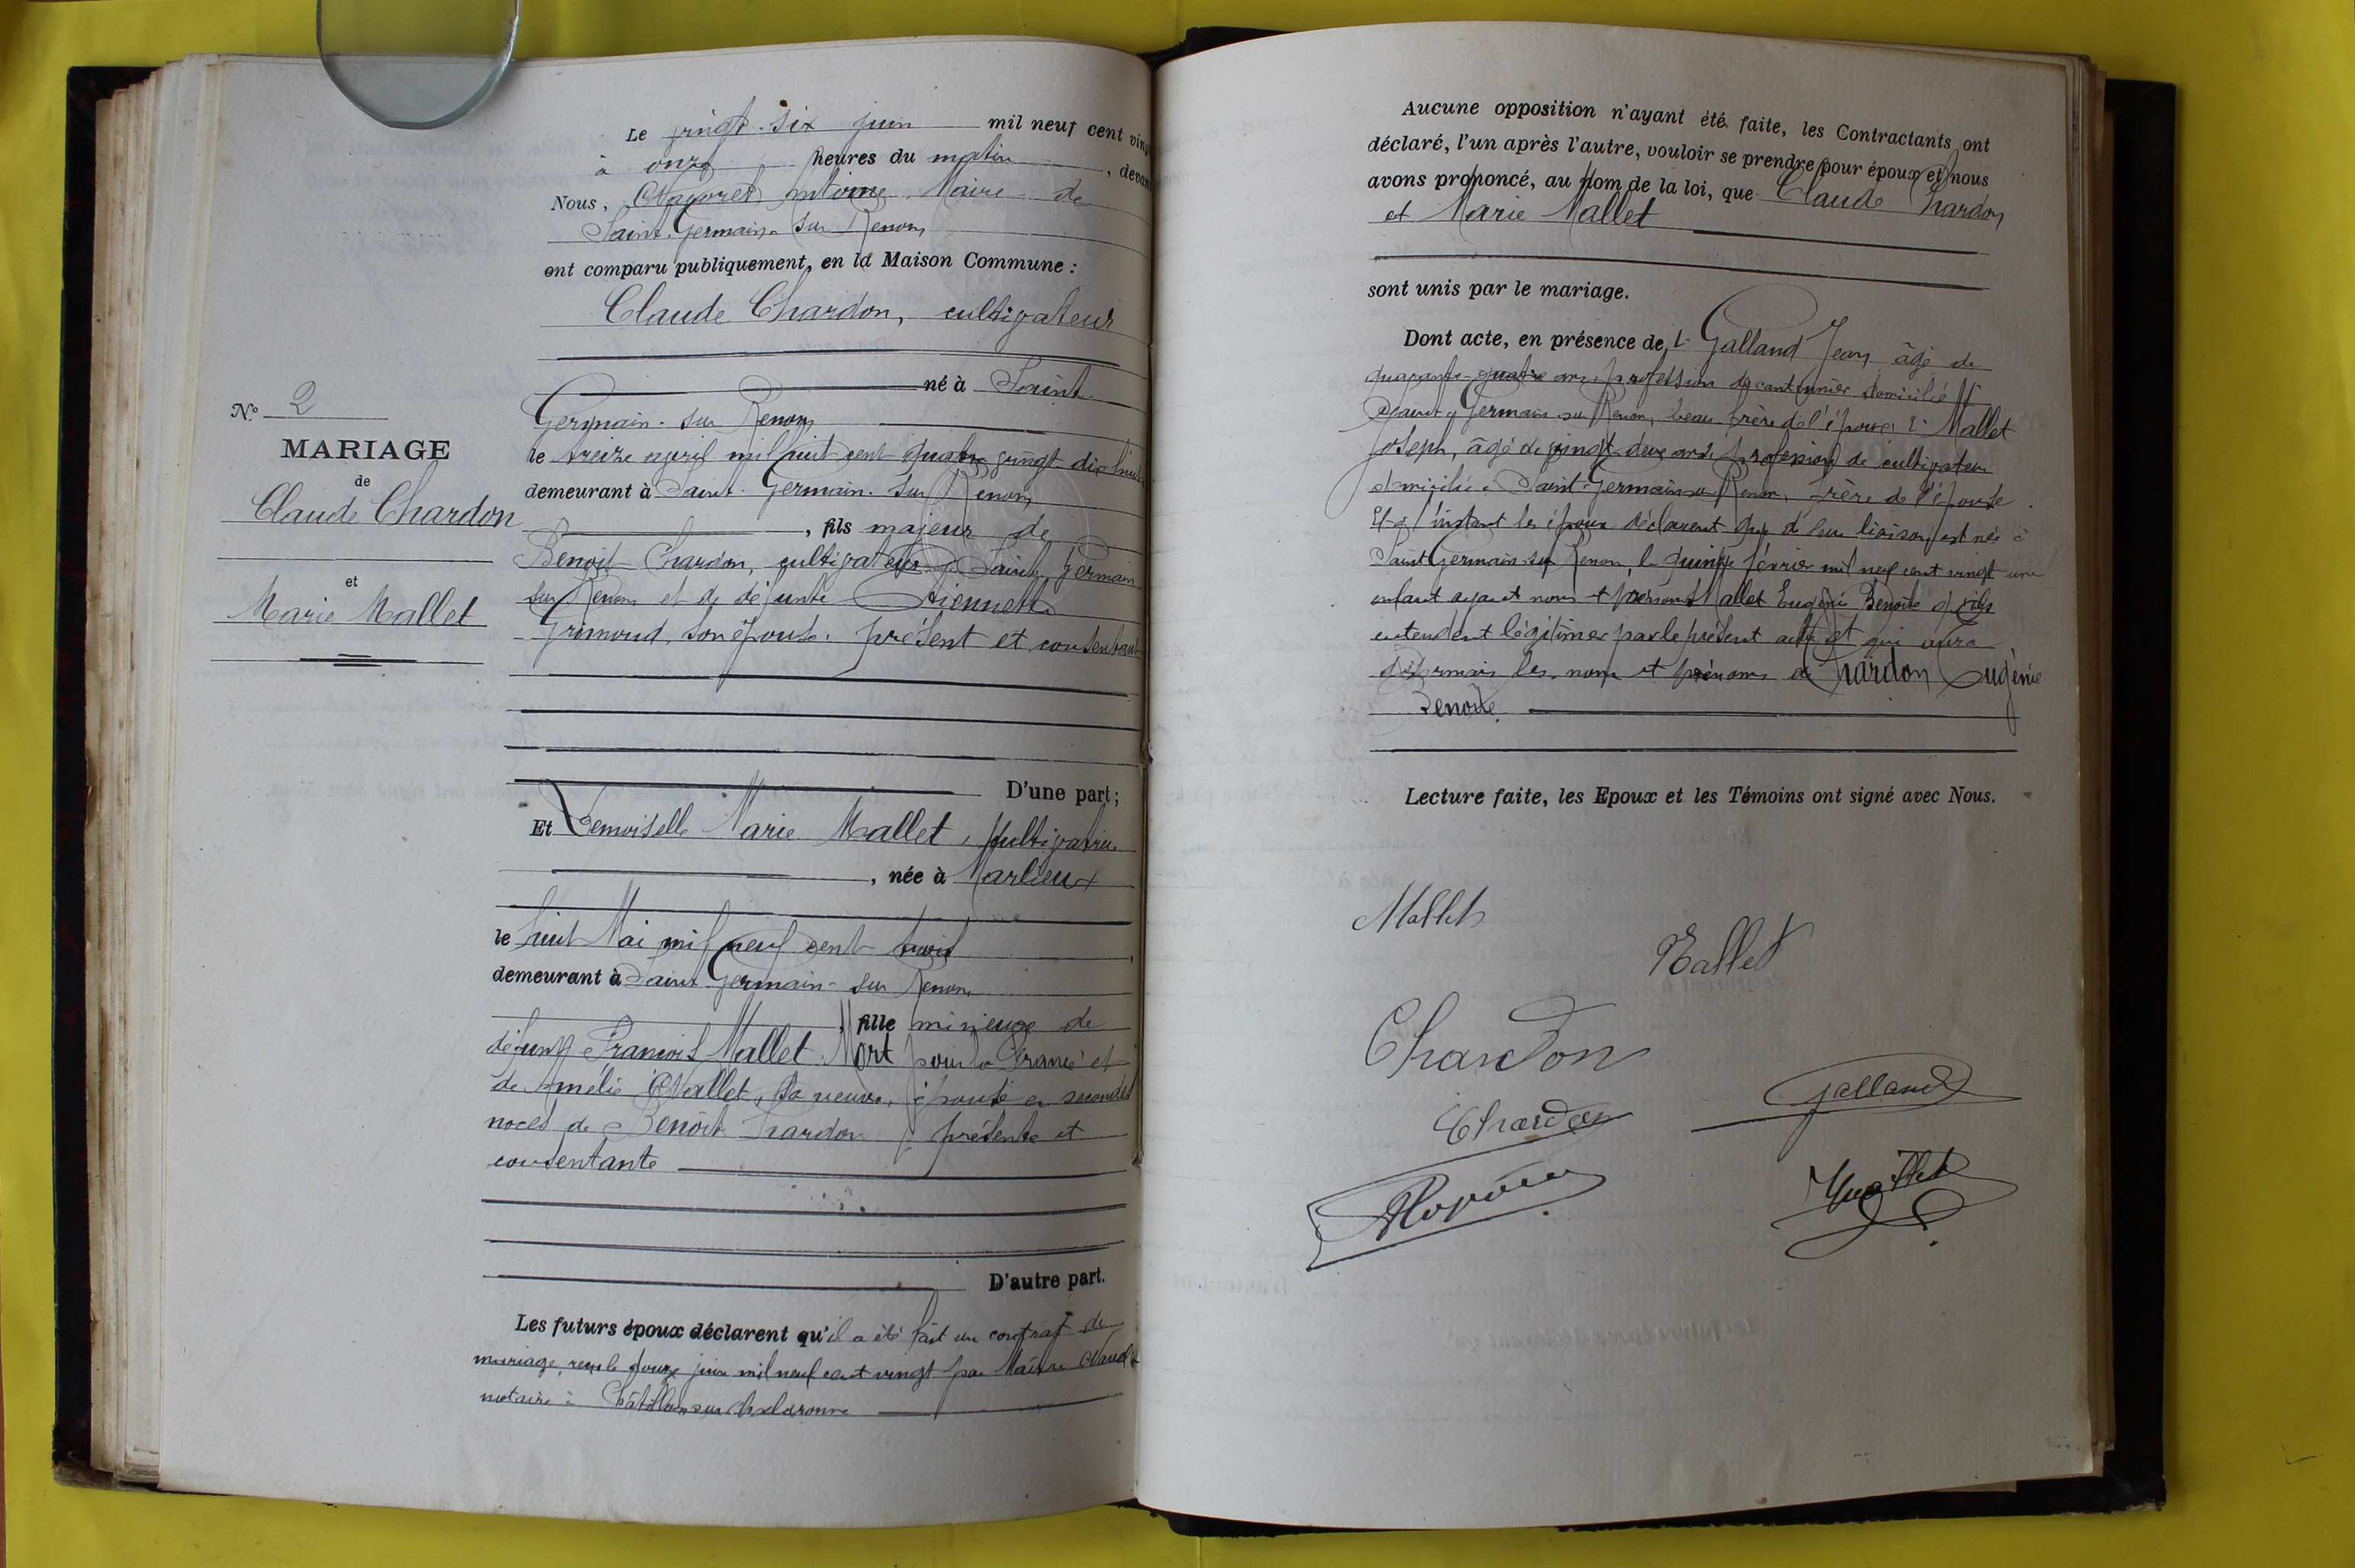 Le vingt-six juin mil neuf cent vingt
à onze heures du matin, devant
Nous, Antoine, Maire de
Saint-Germain-sur-Renon
ont comparu publiquement, en la Maison Commune :
Claude Chardon, cultivateur
né à Saint
Germain-sur-Renon
le treize avril mil huit cent quatre vingt dix huit
demeurant à Saint-Germain-sur-Renon
, fils majeur de
Benoit Chardon, cultivateur à Saint Germain
sur Renon et de défunte Etiennette
Grimoud, son épouse. présent et consentant
D'une part ;
N° 2
MARIAGE
de
Claude Chardon
et
Marie Mallet
Et Demoiselle Marie Mallet, cultivatrice
, née à Marlieux
le huit Mai mil neuf cent trois
demeurant à Saint-Germain-sur Renon
, fille mineure de
défunt François Mallet Mort pour la France et
de Amélie, sa veuve, épouse en secondes
noces de Benoit Chardon, présente et
consentante
D'autre part.
Les futurs époux déclarent qu'il a été fait un contrat de
mariage, reçu le douze juin mil neuf cent vingt par Maître
notaire à Châtillon sur Chalaronne
Aucune opposition n'ayant été faite, les Contractants ont
déclaré, l'un après l'autre, vouloir se prendre pour époux et nous
avons prononcé, au nom de la loi, que Claude Chardon
et Marie Mallet
sont unis par le mariage.
Dont acte, en présence de 1° Galland Jean, âgé de
quarante-quatre ans, profession de cantonnier domicilié à
Saint Germain sur Renon, beau-frère de l'épouse, 2° Mallet
Joseph, âgé de vingt-deux ans, profession de cultivateur
domicilié à Saint-Germain sur Renon, frère de l'épouse.
Et à l'instant les époux déclarent que de leur liaison est née à
Saint Germain sur Renon, le quinze février mil neuf cent vingt une
enfant ayant nom et prénoms Mallet Eugénie Benoite qu'ils
entendent légitimer par le présent acte et qui aura
désormais les nom et prénoms de Chardon Eugénie
Benoîte.
Lecture faite, les Epoux et les Témoins ont signé avec Nous.
Mallet
Mallet
Chardon
Galland
Chardon